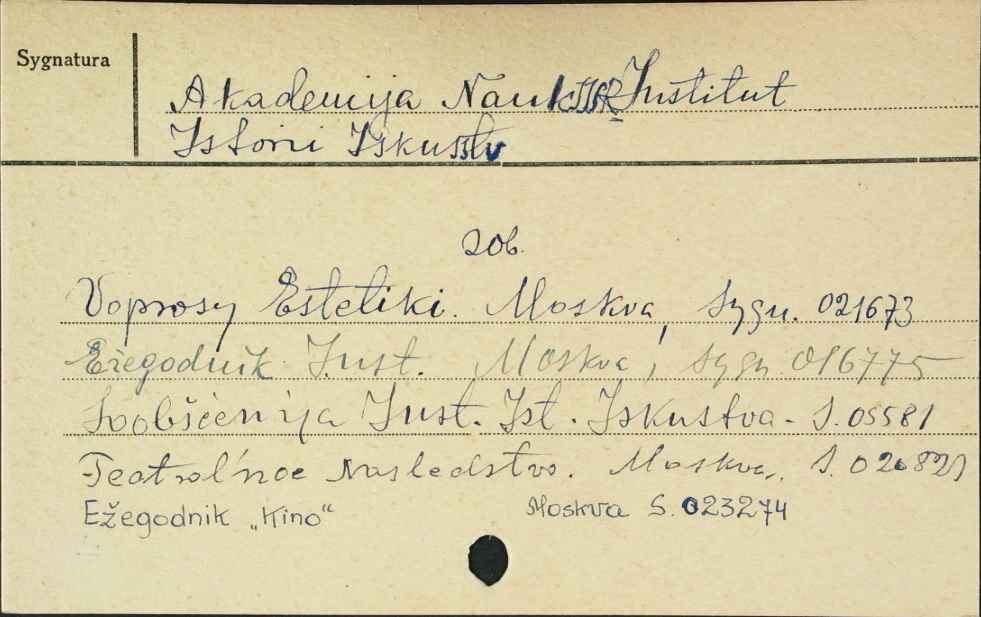 Sygnatura
Akademija Nauk SSSR Institut
Istorii Iskusstv
zob.
Voprosy Estetiki. Moskva, Sygn. 021673
Ežegodnik Inst. Moskva, Sygn. 016775
Soobščenija Inst. Ist. Iskusstva - S. 05581
Teatral'noe Nasledstvo. Moskva, S. 020821
Ežegodnik „Kino" Moskva S. 023274